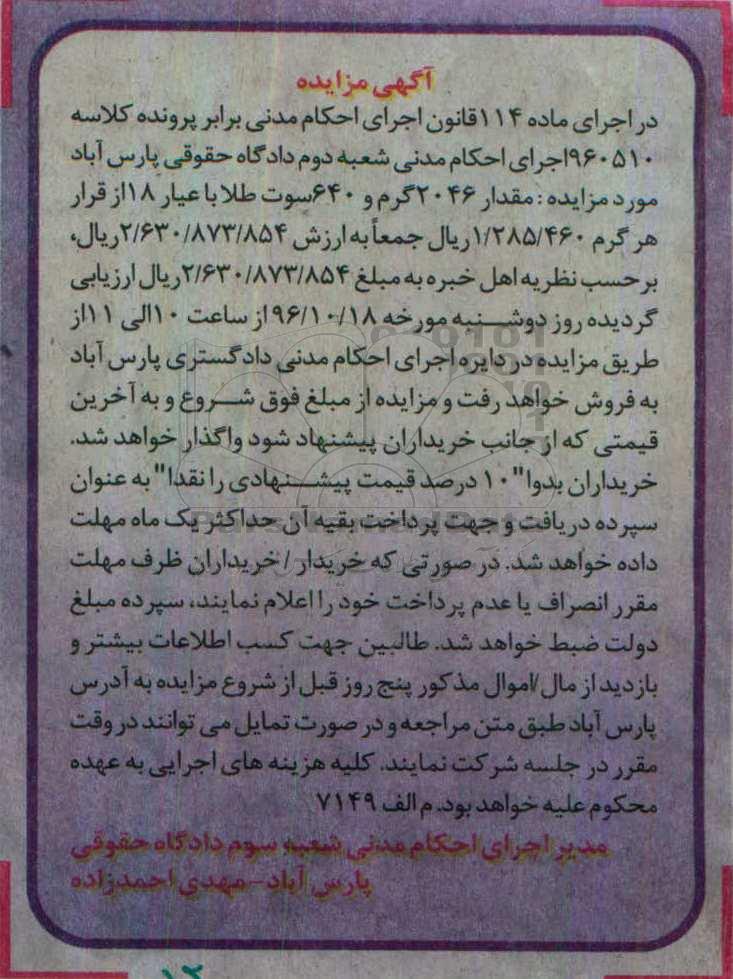 آگهی مزایده
در اجرای ماده ۱۱۴قانون اجرای احکام مدنی برابر پرونده کلاسه
۹۶۰۵۱۰اجرای احکام مدنی شعبه دوم دادگاه حقوقی پارس آباد
مورد مزایده : مقدار ۲۰۴۶گرم و ۶۴۰سوت طلا با عیار ۱۸از قرار
هر گرم ۱/۲۸۵/۴۶۰ریال جمعاً به ارزش ۲/۶۳۰/۸۷۳/۸۵۴ریال،
برحسب نظریه اهل خبره به مبلغ ۲/۶۳۰/۸۷۳/۸۵۴ریال ارزیابی
گردیده روز دوشنبه مورخه ۹۶/۱۰/۱۸از ساعت ۱۰الی ۱۱از
طریق مزایده در دایره اجرای احکام مدنی دادگستری پارس آباد
به فروش خواهد رفت و مزایده از مبلغ فوق شروع و به آخرین
قیمتی که از جانب خریداران پیشنهاد شود واگذار خواهد شد.
خریداران بدوا"۱۰ درصد قیمت پیشنهادی را نقدا" به عنوان
سپرده دریافت و جهت پرداخت بقیه آن حداکثر یک ماه مهلت
داده خواهد شد. در صورتی که خریدار/خریداران ظرف مهلت
مقرر انصراف یا عدم پرداخت خود را اعلام نمایند، سپرده مبلغ
دولت ضبط خواهد شد. طالبین جهت کسب اطلاعات بیشتر و
بازدید از مال/اموال مذکور پنج روز قبل از شروع مزایده به آدرس
پارس آباد طبق متن مراجعه و در صورت تمایل می توانند در وقت
مقرر در جلسه شرکت نمایند. کلیه هزینه های اجرایی به عهده
محکوم علیه خواهد بود. م الف ۷۱۴۹
مدیر اجرای احکام مدنی شعبه سوم دادگاه حقوقی
پارس آباد-مهدی احمدزاده
۱۲